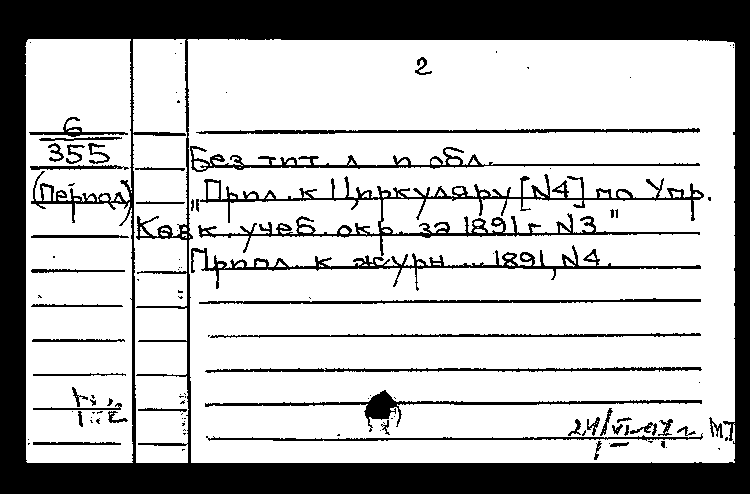 2
6
355
(Период)
Без тит. л. и обл.
„Прил. к Циркуляру [N4] по Упр.
Кавк. учеб. окр. за 1891 г. N3"
Прил. к журн ... 1891, N4.